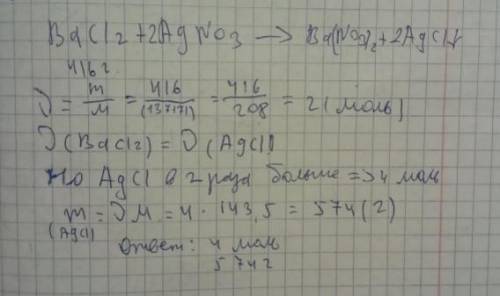 BaCl2 + 2AgNO3 → Ba(NO3)2 + 2AgCl↓
416 г
ν = m/M = 416/(137+71) = 416/208 = 2 (моль)
ν(BaCl2) = ν(AgCl)
Но AgCl в 2 раза больше => 4 моль
m(AgCl) = νM = 4 · 143,5 = 574 (г)
Ответ: 4 моль
574 г